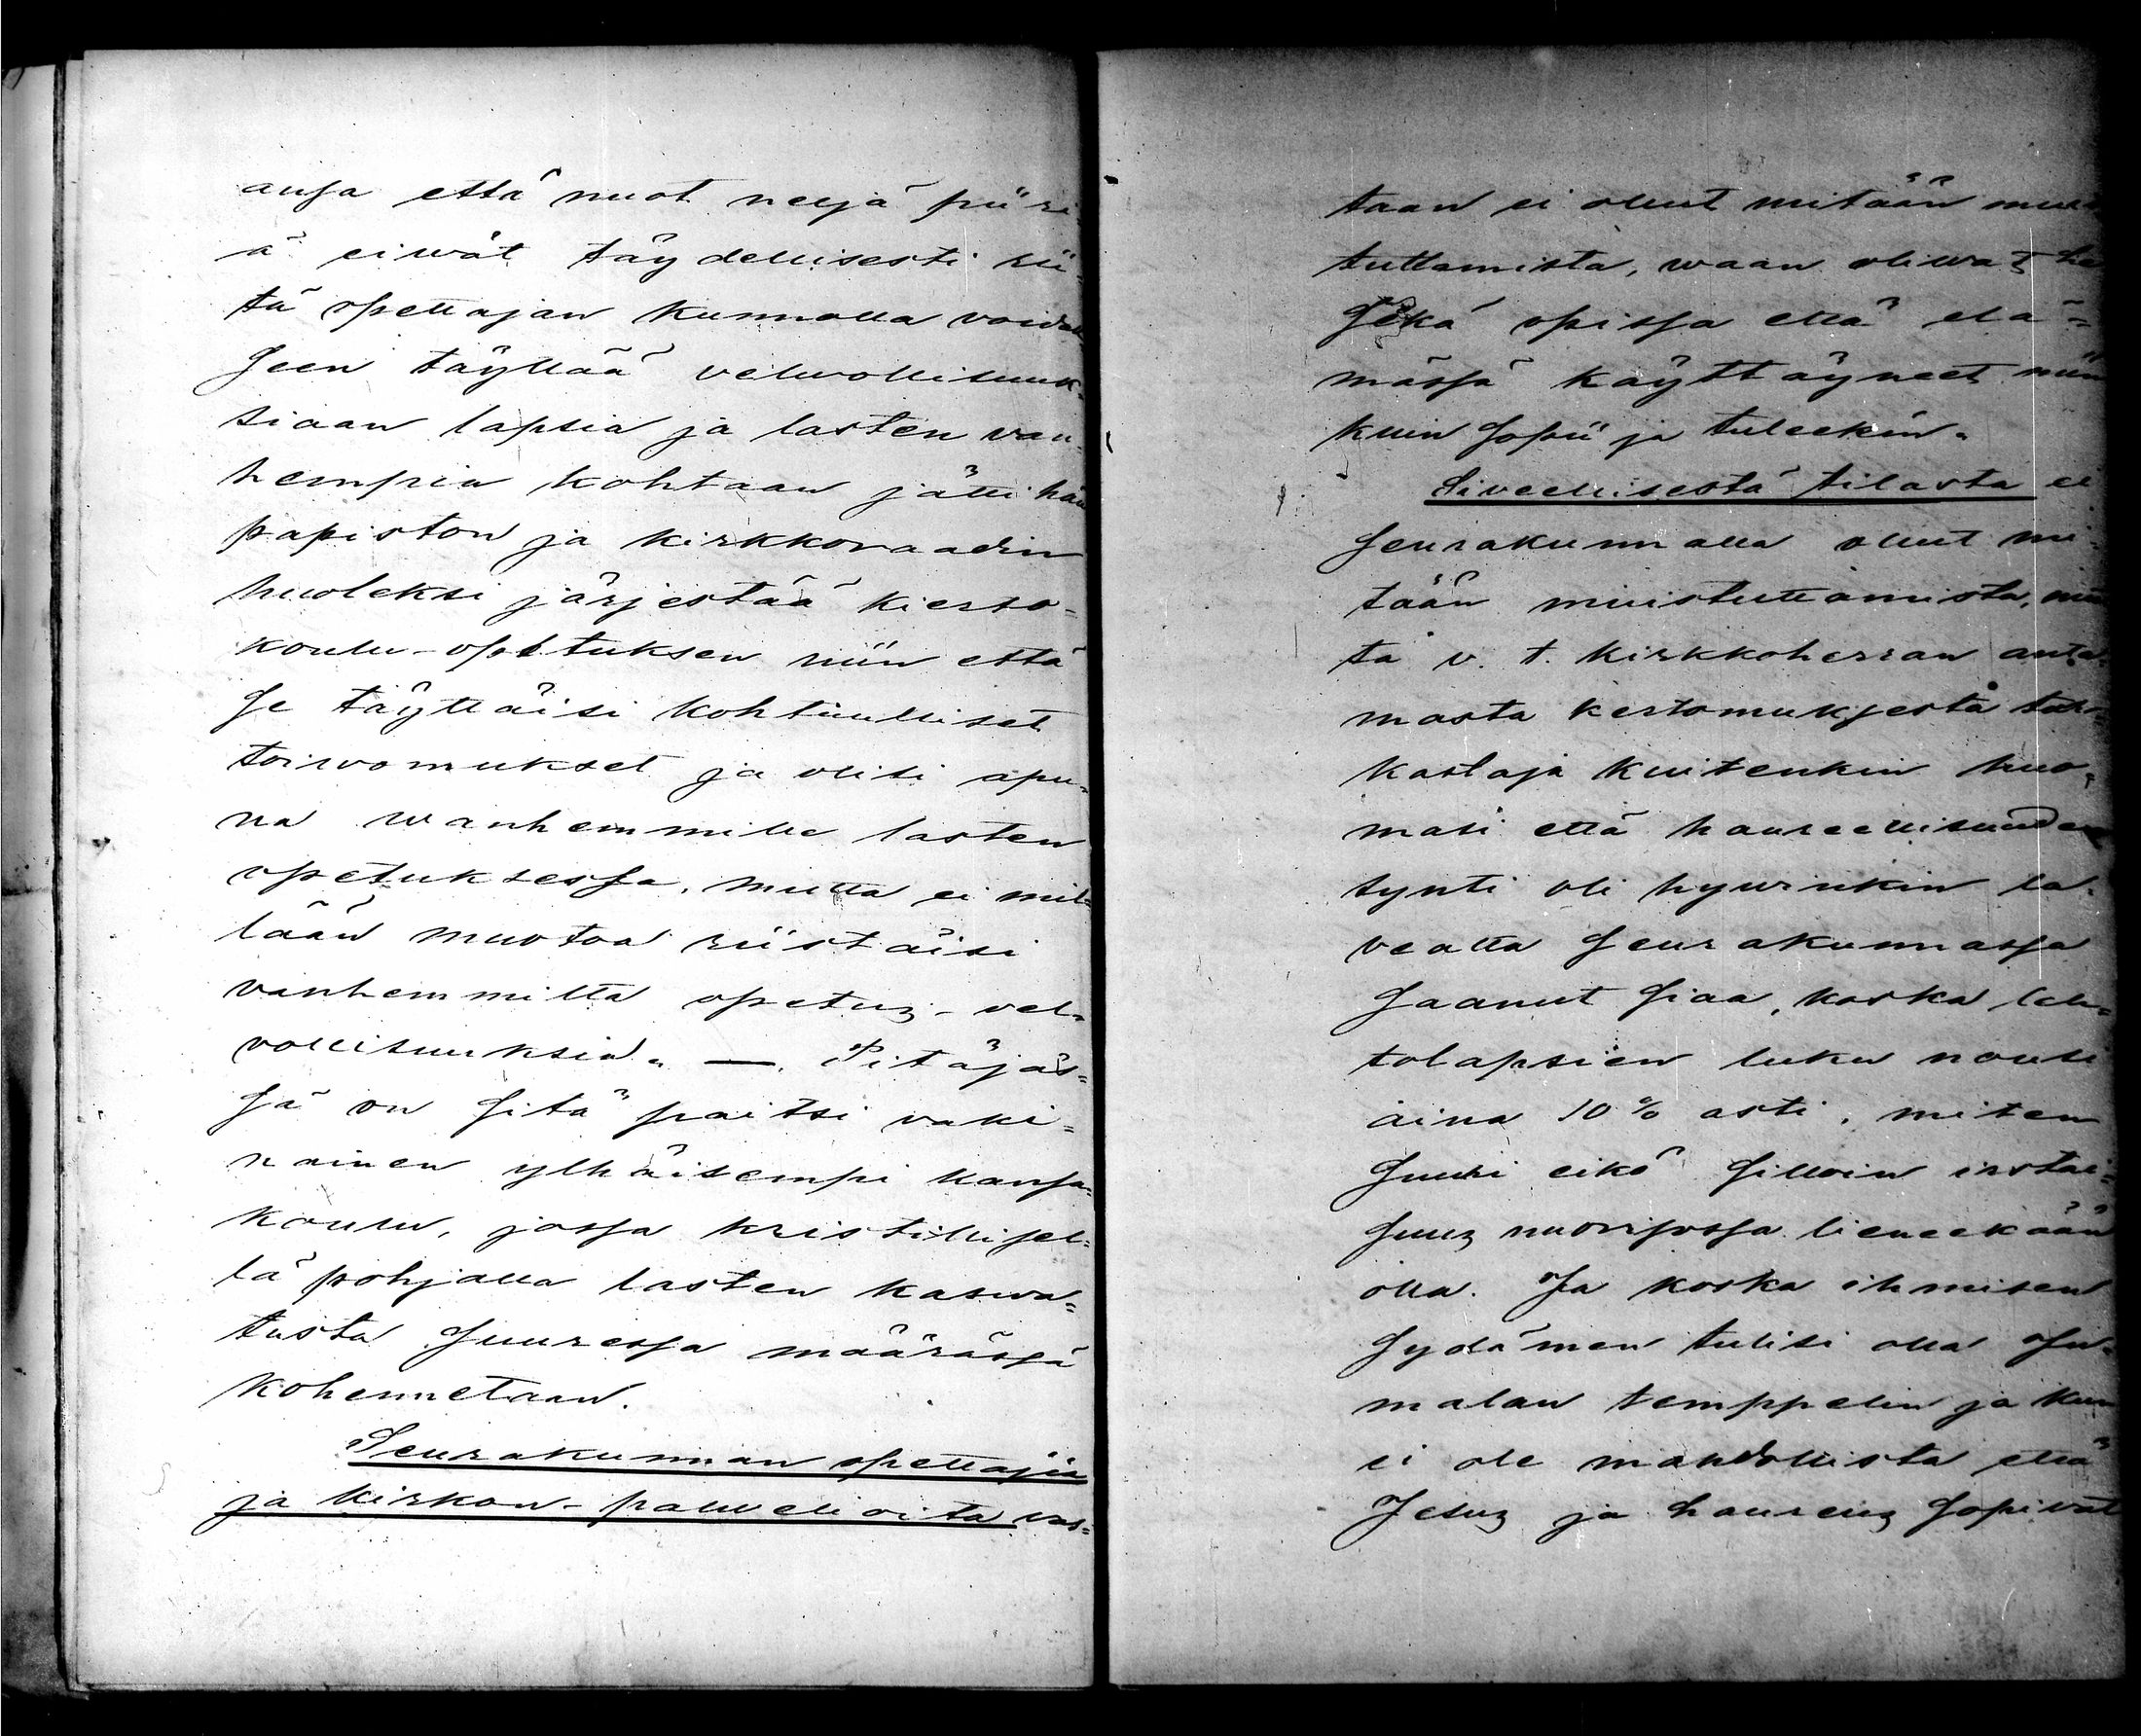 ansa että nuot neljä piiri-
ä eiwät täydellisesti rii-
tä opettajan kunnolla voidak-
seen täyttää velwollisuuk-
siaan lapsia ja lasten van-
hempia kohtaan jätti hän
papiston ja kirkkoraadin
huoleksi järjestää kierto-
koulu-opetuksen niin että
se täyttäisi kohtuulliset
toiwomukset ja olisi apu-
na wanhemmille lasten
opetuksessa, mutta ei mil-
lään muotoa riistäisi
vanhemmilta opetus-vel-
vollisuuksia. —. Pitäjäs-
sä on sitä paitsi vaki-
nainen ylhäisempi kansa-
koulu, jossa kristillisel-
lä pohjalla lasten kaswa-
tusta suuressa määrässä
kohennetaan.
Seurakunnan opettajia
ja kirkon-palvelioita vas-
taan ei ollut mitään muis-
tuttamista, waan oliwat he
sekä opissa että elä-
mässä käyttäyneet niin
kuin sopii ja tuleekin.
Siveellisestä tilasta ei
seurakunnalla ollut mi-
tään muistuttamista, mut-
ta v. t. kirkkoherran anta-
masta kertomuksesta tar-
kastaja kuitenkin huo-
masi että haureellisuuden
synti oli hywinkin la-
vealta seurakunnassa
saanut siaa, koska leh-
tolapsien luku nousi
aina 10% asti, miten
suuri eikö silloin irstai-
suus nuorisossa lieneekään
olla. Ja koska ihmisen
sydämen tulisi olla Ju-
malan temppelin ja kun
ei ole mahdollista että
Jesus ja haureus sopivat